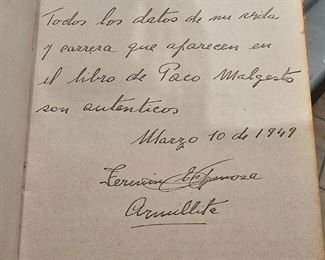 Todos los datos de mi vida
y carrera que aparecen en
el libro de Paco Malgesto
son autenticos
Marzo 10 de 1949
Fermin Espinosa
Armillita